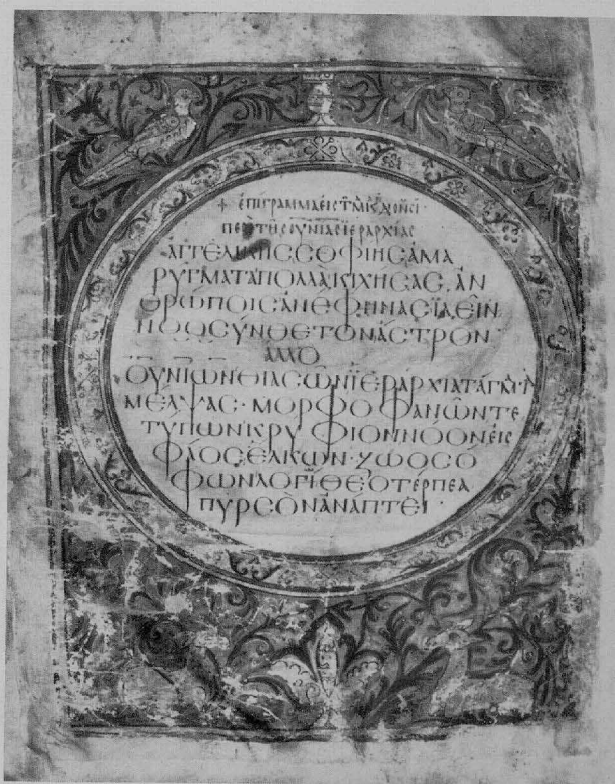 + ἐπίγραμμα εἰς τ
περὶ τῆς οὐνίας ἱεραρχίας
ΑΓΓΕΛΙΚΗΣ ΣΟΦΙΗΣ ΑΜΑ
ΡΥΓΜΑΤΑ ΠΟΛΛΑ ΚΙΧΗΣΑΣ, ΑΝ
ΘΡΩΠΟΙΣ ΑΝΕΦΗΝΑΣ ΙΔΕΙΝ
ΝΟΟΣΥΝΘΕΤΟΝ ΑΣΤΡΟΝ ·
ΑΛΛΟ
ΟΥΝΙΩΝ ΘΙΑΣΩΝ ΙΕΡΑΡΧΙΑ ΤΑΓΜ
ΜΕΛΨΑΣ · ΜΟΡΦΟΦΑΝΩΝ ΤΕ
ΤΥΠΩΝ ΚΡΥΦΙΟΝ ΝΟΟΝ ΕΙΣ
ΦΑΟΣ ΕΛΚΩΝ · ΖΩΟΣΟ
ΦΩΝ ΛΟΓΙ ΘΕΟΤΕΡΠΕΑ
ΠΥΡΣΟΝ ΑΝΑΠΤΕΙ ·